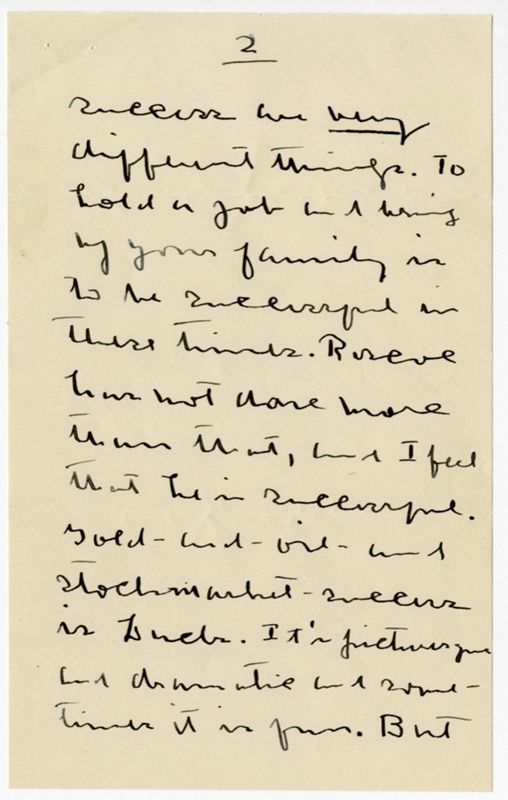 2
success are very
different things. To
hold a job and bring
up your family is
to be successful in
these times. Roscoe
has not done more
than that, and I feel
that he is successful.
Gold-and-oil-and
stockmarket-success
is Luck. It's picturesque
and dramatic and some-
times it is fun. But